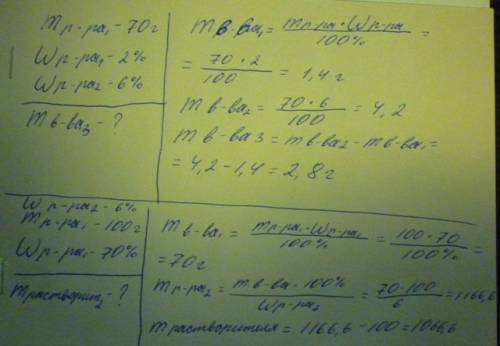 m р-ра₁ - 70г
W р-ра₁ - 2%
W р-ра₂ - 6%
m в-ва₃ - ?
m в-ва₁ = m р-ра · W р-ра / 100% =
= 70 · 2 / 100 = 1,4 г
m в-ва₂ = 70 · 6 / 100 = 4,2
m в-ва3 = m в-ва₂ - m в-ва₁ =
= 4,2 - 1,4 = 2,8 г
W р-ра₂ - 6%
m р-ра₁ - 100г
W р-ра₁ - 70%
m растворит₂ - ?
m в-ва₁ = m р-ра₁ · W р-ра₁ / 100% = 100 · 70 / 100% =
= 70 г
m р-ра₂ = m в-ва · 100% / W р-ра₂ = 70 · 100 / 6 = 1166,6
m растворителя = 1166,6 - 100 = 1066,6